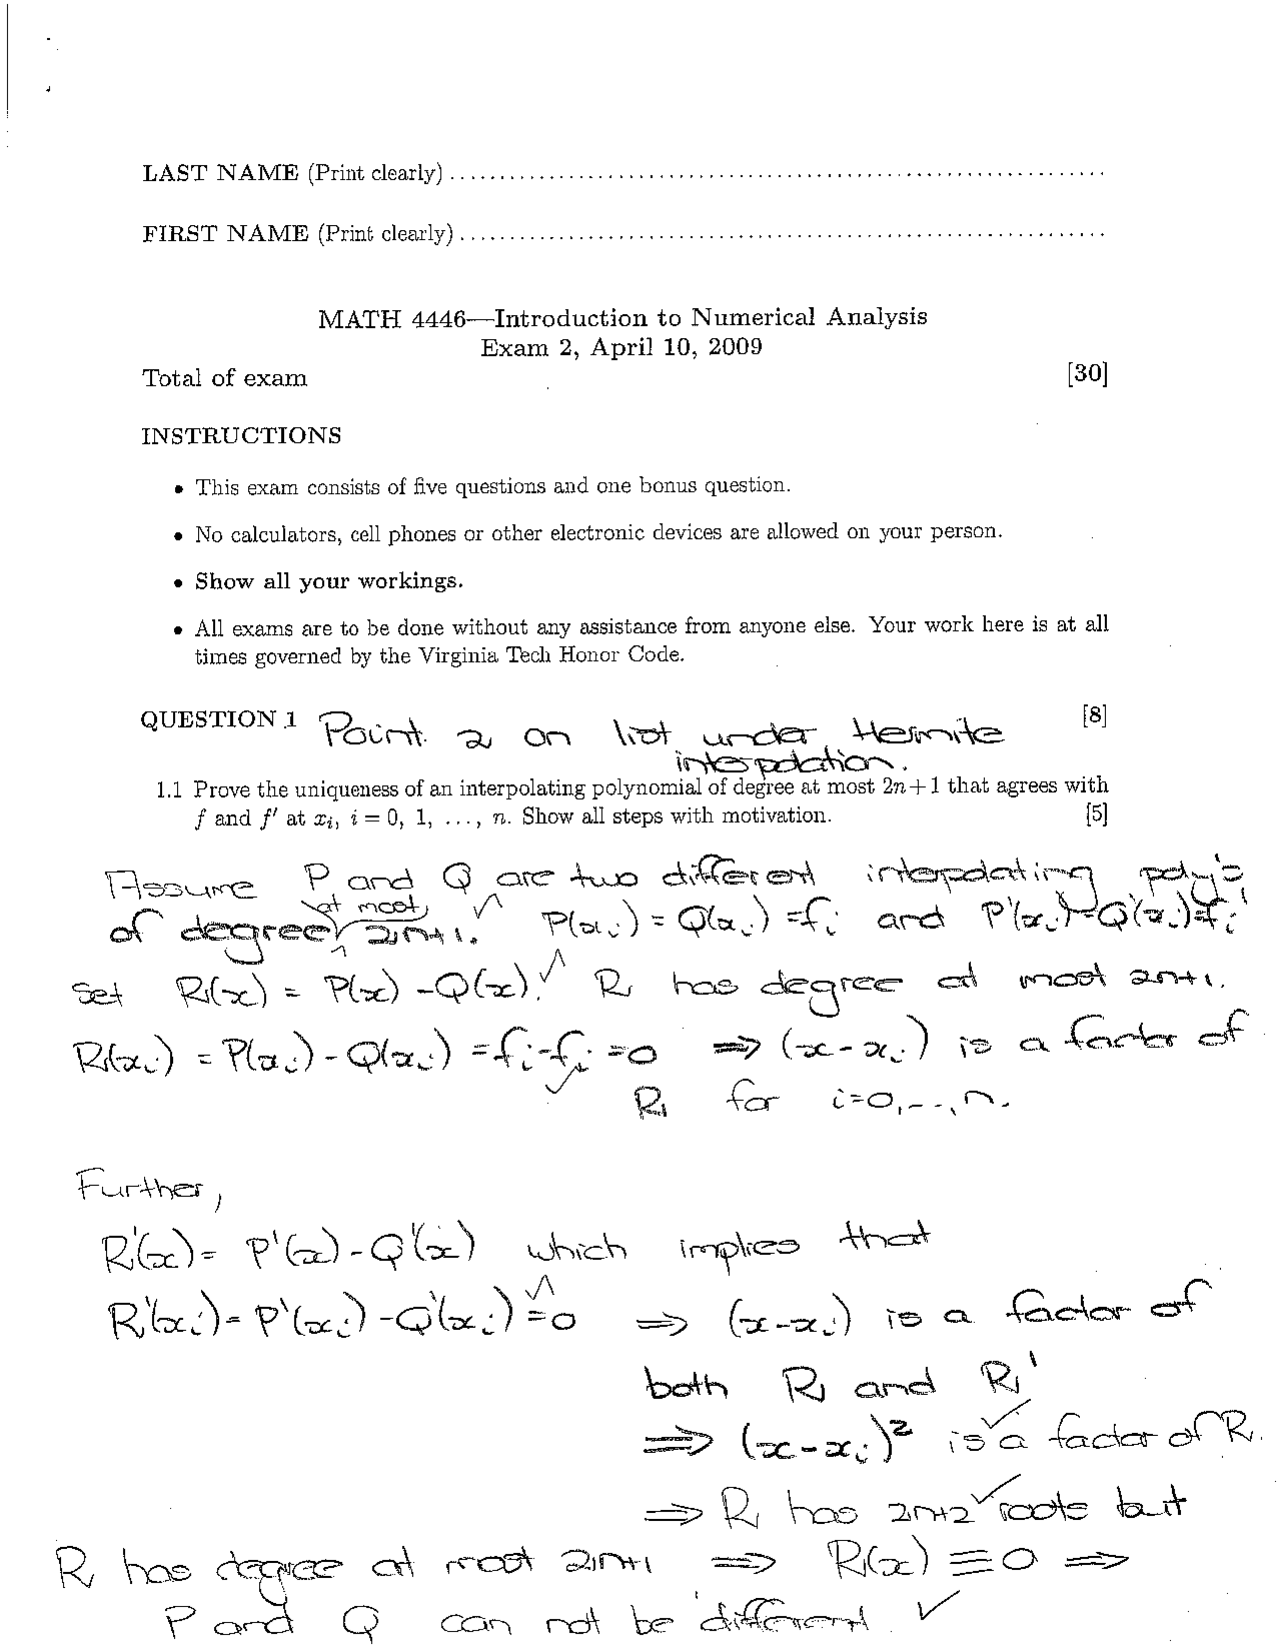 LAST NAME (Print clearly) ................................................................
FIRST NAME (Print clearly) ...............................................................
MATH 4446—Introduction to Numerical Analysis
Exam 2, April 10, 2009
Total of exam [30]
INSTRUCTIONS
• This exam consists of five questions and one bonus question.
• No calculators, cell phones or other electronic devices are allowed on your person.
• Show all your workings.
• All exams are to be done without any assistance from anyone else. Your work here is at all
times governed by the Virginia Tech Honor Code.
QUESTION 1 Point 2 on list under Hermite [8]
interpolation.
1.1 Prove the uniqueness of an interpolating polynomial of degree at most 2n+1 that agrees with
f and f′ at xᵢ, i = 0, 1, ..., n. Show all steps with motivation. [5]
Assume P and Q are two different interpolating poly's
of degree at most 2n+1. ✓ P(xᵢ) = Q(xᵢ) = fᵢ and P'(xᵢ) = Q'(xᵢ) = fᵢ'
set R(x) = P(x) - Q(x). ✓ R has degree at most 2n+1.
R(xᵢ) = P(xᵢ) - Q(xᵢ) = fᵢ - fᵢ = 0 ✓ ⇒ (x - xᵢ) is a factor of
R for i=0,..., n.
Further,
R'(x) = P'(x) - Q'(x) which implies that
R'(xᵢ) = P'(xᵢ) - Q'(xᵢ) = 0 ✓ ⇒ (x-xᵢ) is a factor of
both R and R'
⇒ (x-xᵢ)² is a ✓ factor of R.
⇒ R has 2n+2 ✓ roots but
R has degree at most 2n+1 ⇒ R(x) ≡ 0 ⇒
P and Q can not be different. ✓